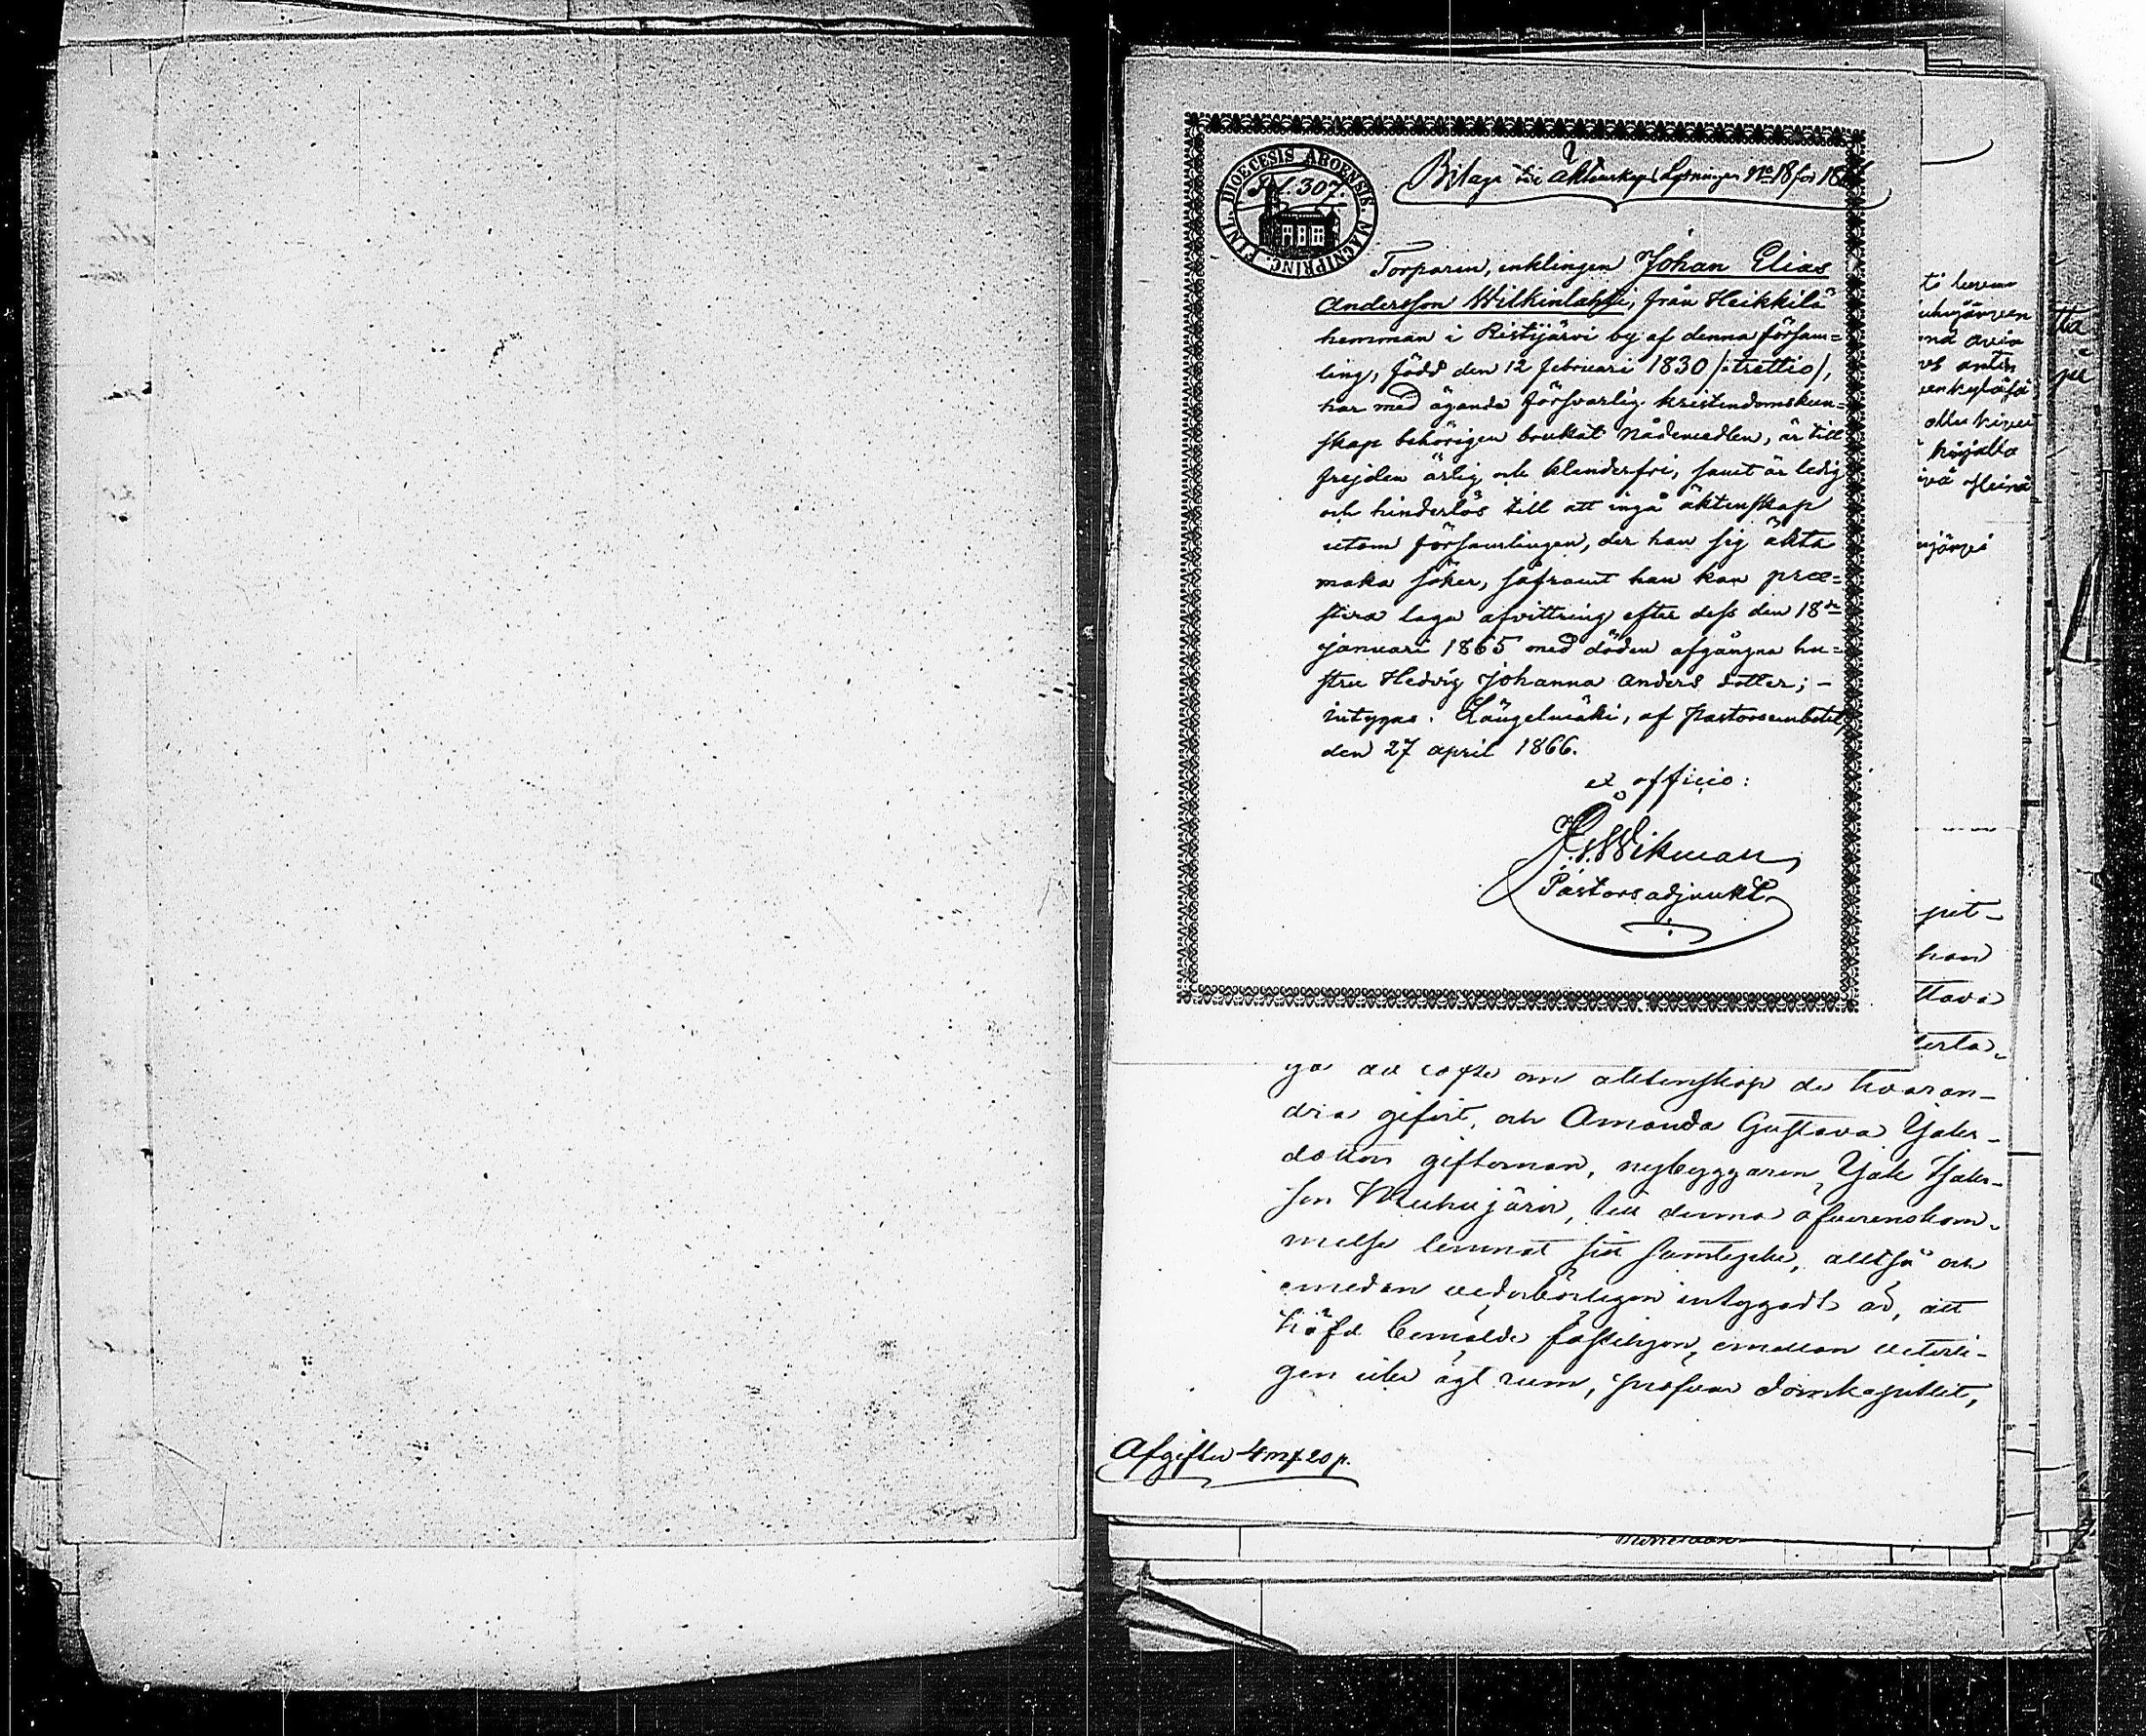 Bilaga till Äktenskaps Lysningen No 18 för 1866
FINL. DIOECESIS ABOENSIS MAGNIPRINC.
307.
Torparen, enklingen Johan Elias
Andersson Wilkinlahti, från Heikkilä
hemman i Ristijärvi by af denna försam=
ling, född den 12 februari 1830 /:trettio/,
har med ägande försvarlig kristendomskun=
skap behörigen brukat Nådemedlen, är till
frejden ärlig och klanderfri, samt är ledig
och hinderlös till att ingå äktenskap
utom församlingen, der han sig äkta
maka söker, såframt han kan præ=
stera laga afvittring efter dess den 18de
januari 1865 med döden afgångna hu=
stru Hedvig Johanna Anders dotter; –
intygas. Längelmäki, af Pastorsembetet,
den 27 april 1866.
ex officio:
Wikman,
Pastorsadjunkt.
ga om äktenskap de hvaran-
dra gifvit, och Amanda Gustava Isaks-
dotters giftoman, nybyggaren Isak Isaks-
son Muhujärvi, till denna öfverenskom-
melse lemnat sitt samtycke, alltså och
emedan vederbörligen intygadt är, att
häfd bemälde fästehjon emellan veterli-
gen icke ägt rum, pröfvar Domkapitlet,
Afgifter 4 mk 20 p.